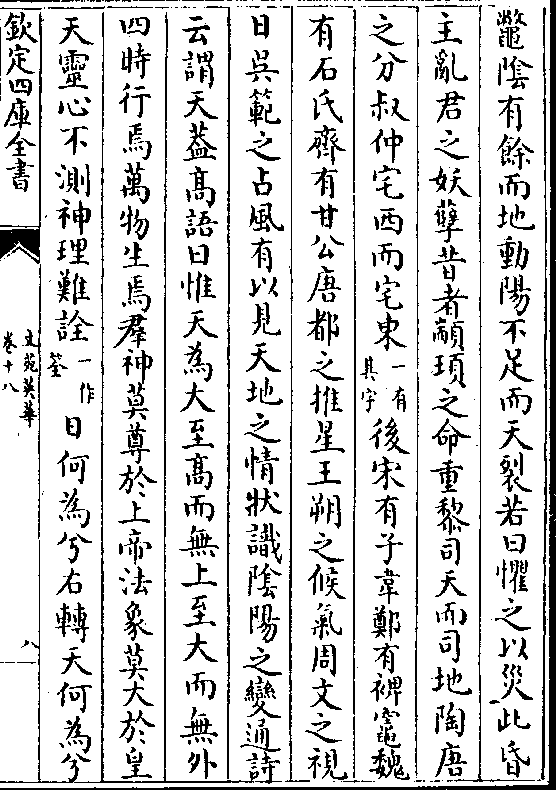 鼈陰有餘而地動陽不足而天裂若日懼之以災此昏
主亂君之妖孽昔者顓頊之命重黎司天而司地陶唐
之分叔仲宅西而宅東一有其字後宋有子韋鄭有裨竈魏
有石氏齊有甘公唐都之推星王朔之候氣周文之視
日吳範之占風有以見天地之情狀識陰陽之變通詩
云謂天葢髙語曰惟天為大至髙而無上至大而無外
四時行焉萬物生焉羣神莫尊於上帝法象莫大於皇
天靈心不測神理難詮一作筌日何為兮右轉天何為兮
欽定四庫全書
文苑英華
卷十八
八